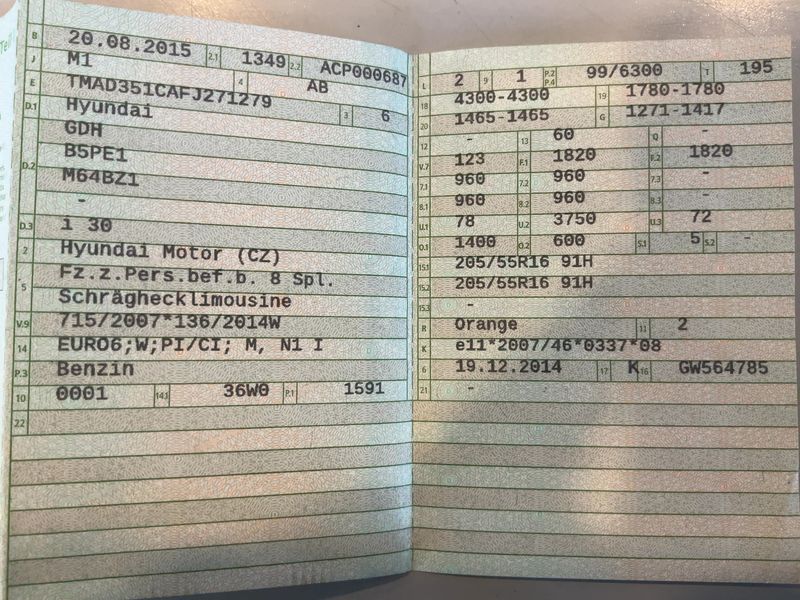 B 20.08.2015 2.1 1349 2.2 ACP000687
J M1 4 AB
E TMAD351CAFJ271279 3 6
D.1 Hyundai
D.2 GDH
B5PE1
M64BZ1
-
D.3 i 30
2 Hyundai Motor (CZ)
5 Fz.z.Pers.bef.b. 8 Spl.
Schräghecklimousine
V.9 715/2007*136/2014W
14 EURO6;W;PI/CI; M, N1 I
P.3 Benzin
10 0001 14.1 36W0 P.1 1591
22
L 2 9 1 P.2 P.4 99/6300 T 195
18 4300-4300 19 1780-1780
20 1465-1465 G 1271-1417
12 - 13 60 Q -
V.7 123 F.1 1820 F.2 1820
7.1 960 7.2 960 7.3 -
8.1 960 8.2 960 8.3 -
U.1 78 U.2 3750 U.3 72
O.1 1400 O.2 600 S.1 5 S.2 -
15.1 205/55R16 91H
15.2 205/55R16 91H
15.3 -
R Orange 11 2
K e11*2007/46*0337*08
6 19.12.2014 17 K 16 GW564785
21 -